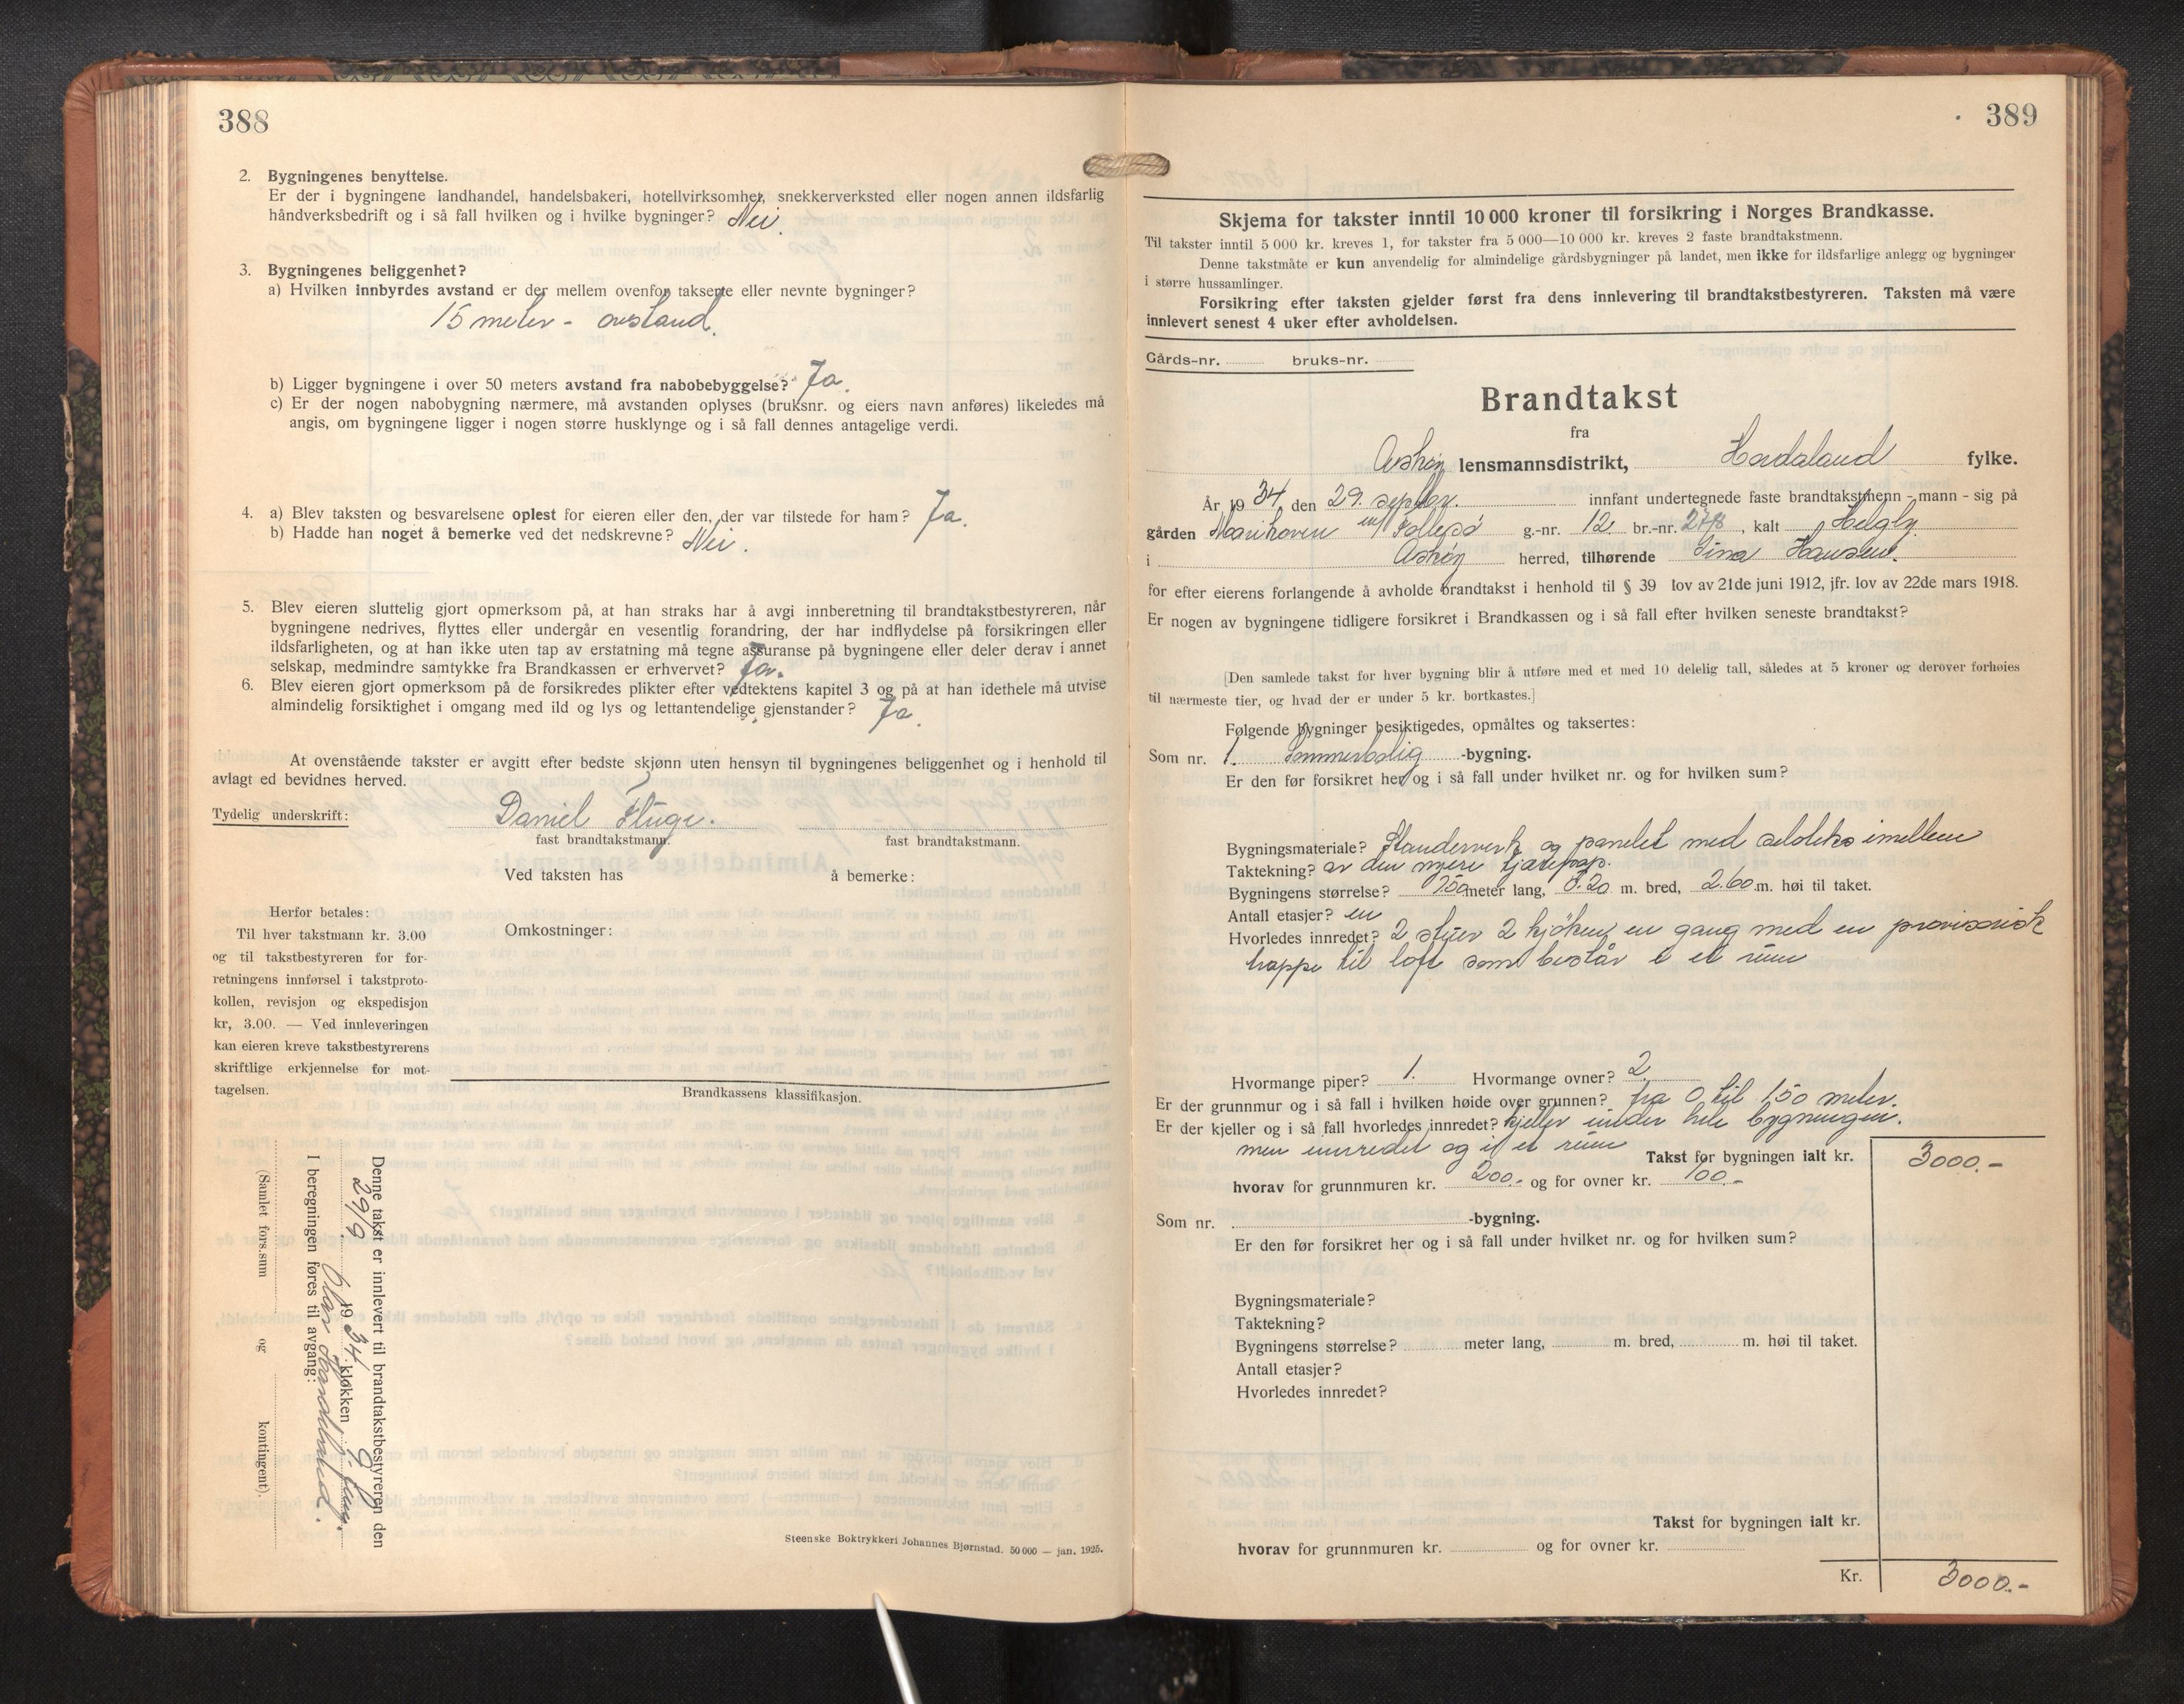 388
2. Bygningenes benyttelse.
Er der i bygningene landhandel, handelsbakeri, hotellvirksomhet, snekkerverksted eller nogen annen ildsfarlig
håndverksbedrift og i så fall hvilken og i hvilke bygninger? Nei.
3. Bygningenes beliggenhet?
a) Hvilken innbyrdes avstand er der mellem ovenfor takserte eller nevnte bygninger?
15 meter - avstand.
b) Ligger bygningene i over 50 meters avstand fra nabobebyggelse? Ja.
c) Er der nogen nabobygning nærmere, må avstanden oplyses (bruksnr. og eiers navn anføres) likeledes må
angis, om bygningene ligger i nogen større husklynge og i så fall dennes antagelige verdi.
4. a) Blev taksten og besvarelsene oplest for eieren eller den, der var tilstede for ham? Ja.
b) Hadde han noget å bemerke ved det nedskrevne? Nei.
5. Blev eieren sluttelig gjort opmerksom på, at han straks har å avgi innberetning til brandtakstbestyreren, når
bygningene nedrives, flyttes eller undergår en vesentlig forandring, der har indflydelse på forsikringen eller
ildsfarligheten, og at han ikke uten tap av erstatning må tegne assuranse på bygningene eller deler derav i annet
selskap, medmindre samtykke fra Brandkassen er erhvervet? Ja.
6. Blev eieren gjort opmerksom på de forsikredes plikter efter vedtektens kapitel 3 og på at han idethele må utvise
almindelig forsiktighet i omgang med ild og lys og lettantendelige gjenstander? Ja.
At ovenstående takster er avgitt efter bedste skjønn uten hensyn til bygningenes beliggenhet og i henhold til
avlagt ed bevidnes herved.
Tydelig underskrift: Daniel Fluge.
fast brandtakstmann. fast brandtakstmann.
Ved taksten has å bemerke:
Herfor betales:
Til hver takstmann kr. 3.00
og til takstbestyreren for for-
retningens innførsel i takstproto-
kollen, revisjon og ekspedisjon
kr, 3.00. — Ved innleveringen
kan eieren kreve takstbestyrerens
skriftlige erkjennelse for mot-
tagelsen.
Omkostninger:
Brandkassens klassifikasjon.
Denne takst er innlevert til brandtakstbestyreren den
29/9. 1934 klokken 9
I beregningen føres til avgang:
(Samlet fors.sum og kontingent).
Steenske Boktrykkeri Johannes Bjørnstad. 50 000 — jan. 1925.
389
Skjema for takster inntil 10 000 kroner til forsikring i Norges Brandkasse.
Til takster inntil 5 000 kr. kreves 1, for takster fra 5 000—10 000 kr. kreves 2 faste brandtakstmenn.
Denne takstmåte er kun anvendelig for almindelige gårdsbygninger på landet, men ikke for ildsfarlige anlegg og bygninger
i større hussamlinger.
Forsikring efter taksten gjelder først fra dens innlevering til brandtakstbestyreren. Taksten må være
innlevert senest 4 uker efter avholdelsen.
Gårds-nr. bruks-nr.
Brandtakst
fra
Askøy lensmannsdistrikt, Hordaland fylke.
År 1934 den 29. septbr. innfant undertegnede faste brandtakstmenn - mann - sig på
gården g.-nr. 12 br.-nr. 278, kalt Helgly
i Askøy herred, tilhørende Sina Hansen.
for efter eierens forlangende å avholde brandtakst i henhold til § 39 lov av 21de juni 1912, jfr. lov av 22de mars 1918.
Er nogen av bygningene tidligere forsikret i Brandkassen og i så fall efter hvilken seneste brandtakst?
[Den samlede takst for hver bygning blir å utføre med et med 10 delelig tall, således at 5 kroner og derover forhøies
til nærmeste tier, og hvad der er under 5 kr. bortkastes.]
Følgende bygninger besiktigedes, opmåltes og taksertes:
Som nr. 1. Sommerbolig -bygning.
Er den før forsikret her og i så fall under hvilket nr. og for hvilken sum?
Bygningsmateriale? Standerverk og panelet med imellem
Taktekning? av den tjærepap.
Bygningens størrelse? 750 meter lang, 5.20 m. bred, 2.60 m. høi til taket.
Antall etasjer? en
Hvorledes innredet? 2 stuer 2 kjøken, en gang med en provisorisk
trappe til loft som består i et rum
Hvormange piper? 1. Hvormange ovner? 2
Er der grunnmur og i så fall i hvilken høide over grunnen? fra 0 til 1,50 meter.
Er der kjeller og i så fall hvorledes innredet? kjeller under hele bygningen.
men uinredet og i et rum Takst for bygningen ialt kr. 3000.-
hvorav for grunnmuren kr. 200.- og for ovner kr. 100.-
Som nr. -bygning.
Er den før forsikret her og i så fall under hvilket nr. og for hvilken sum?
Bygningsmateriale?
Taktekning?
Bygningens størrelse? meter lang, m. bred, m. høi til taket.
Antall etasjer?
Hvorledes innredet?
Takst for bygningen ialt kr.
hvorav for grunnmuren kr. og for ovner kr.
Kr. 3000.-